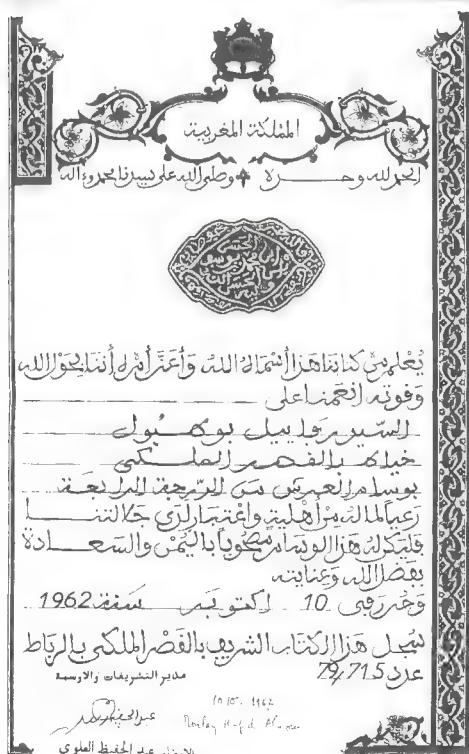 المملكة المغربية
الحمد لله وحده وصلى الله على سيدنا محمد وءاله
يُعْلَم من كتابنا هذا أسماه الله وأعزّ أمره أننا بحول الله
وقوته أنعمنا على
السيد رفاييل بو
خياط بالقصر الملكي
بوسام العرش من الدرجة الرابعة
رعيا لما له من أهلية واعتبار لدى جلالتنا
فليكن له هذا الوسام مصحوبا باليمن والسعادة
بفضل الله وعنايته
وحرر في 10 اكتوبر سنة 1962
سجل هذا الكتاب الشريف بالقصر الملكي بالرباط
عدد 79,715
مدير التشريفات والاوسمة
10.10.1962
Moulay Hafid
عبد الحفيظ العلوي